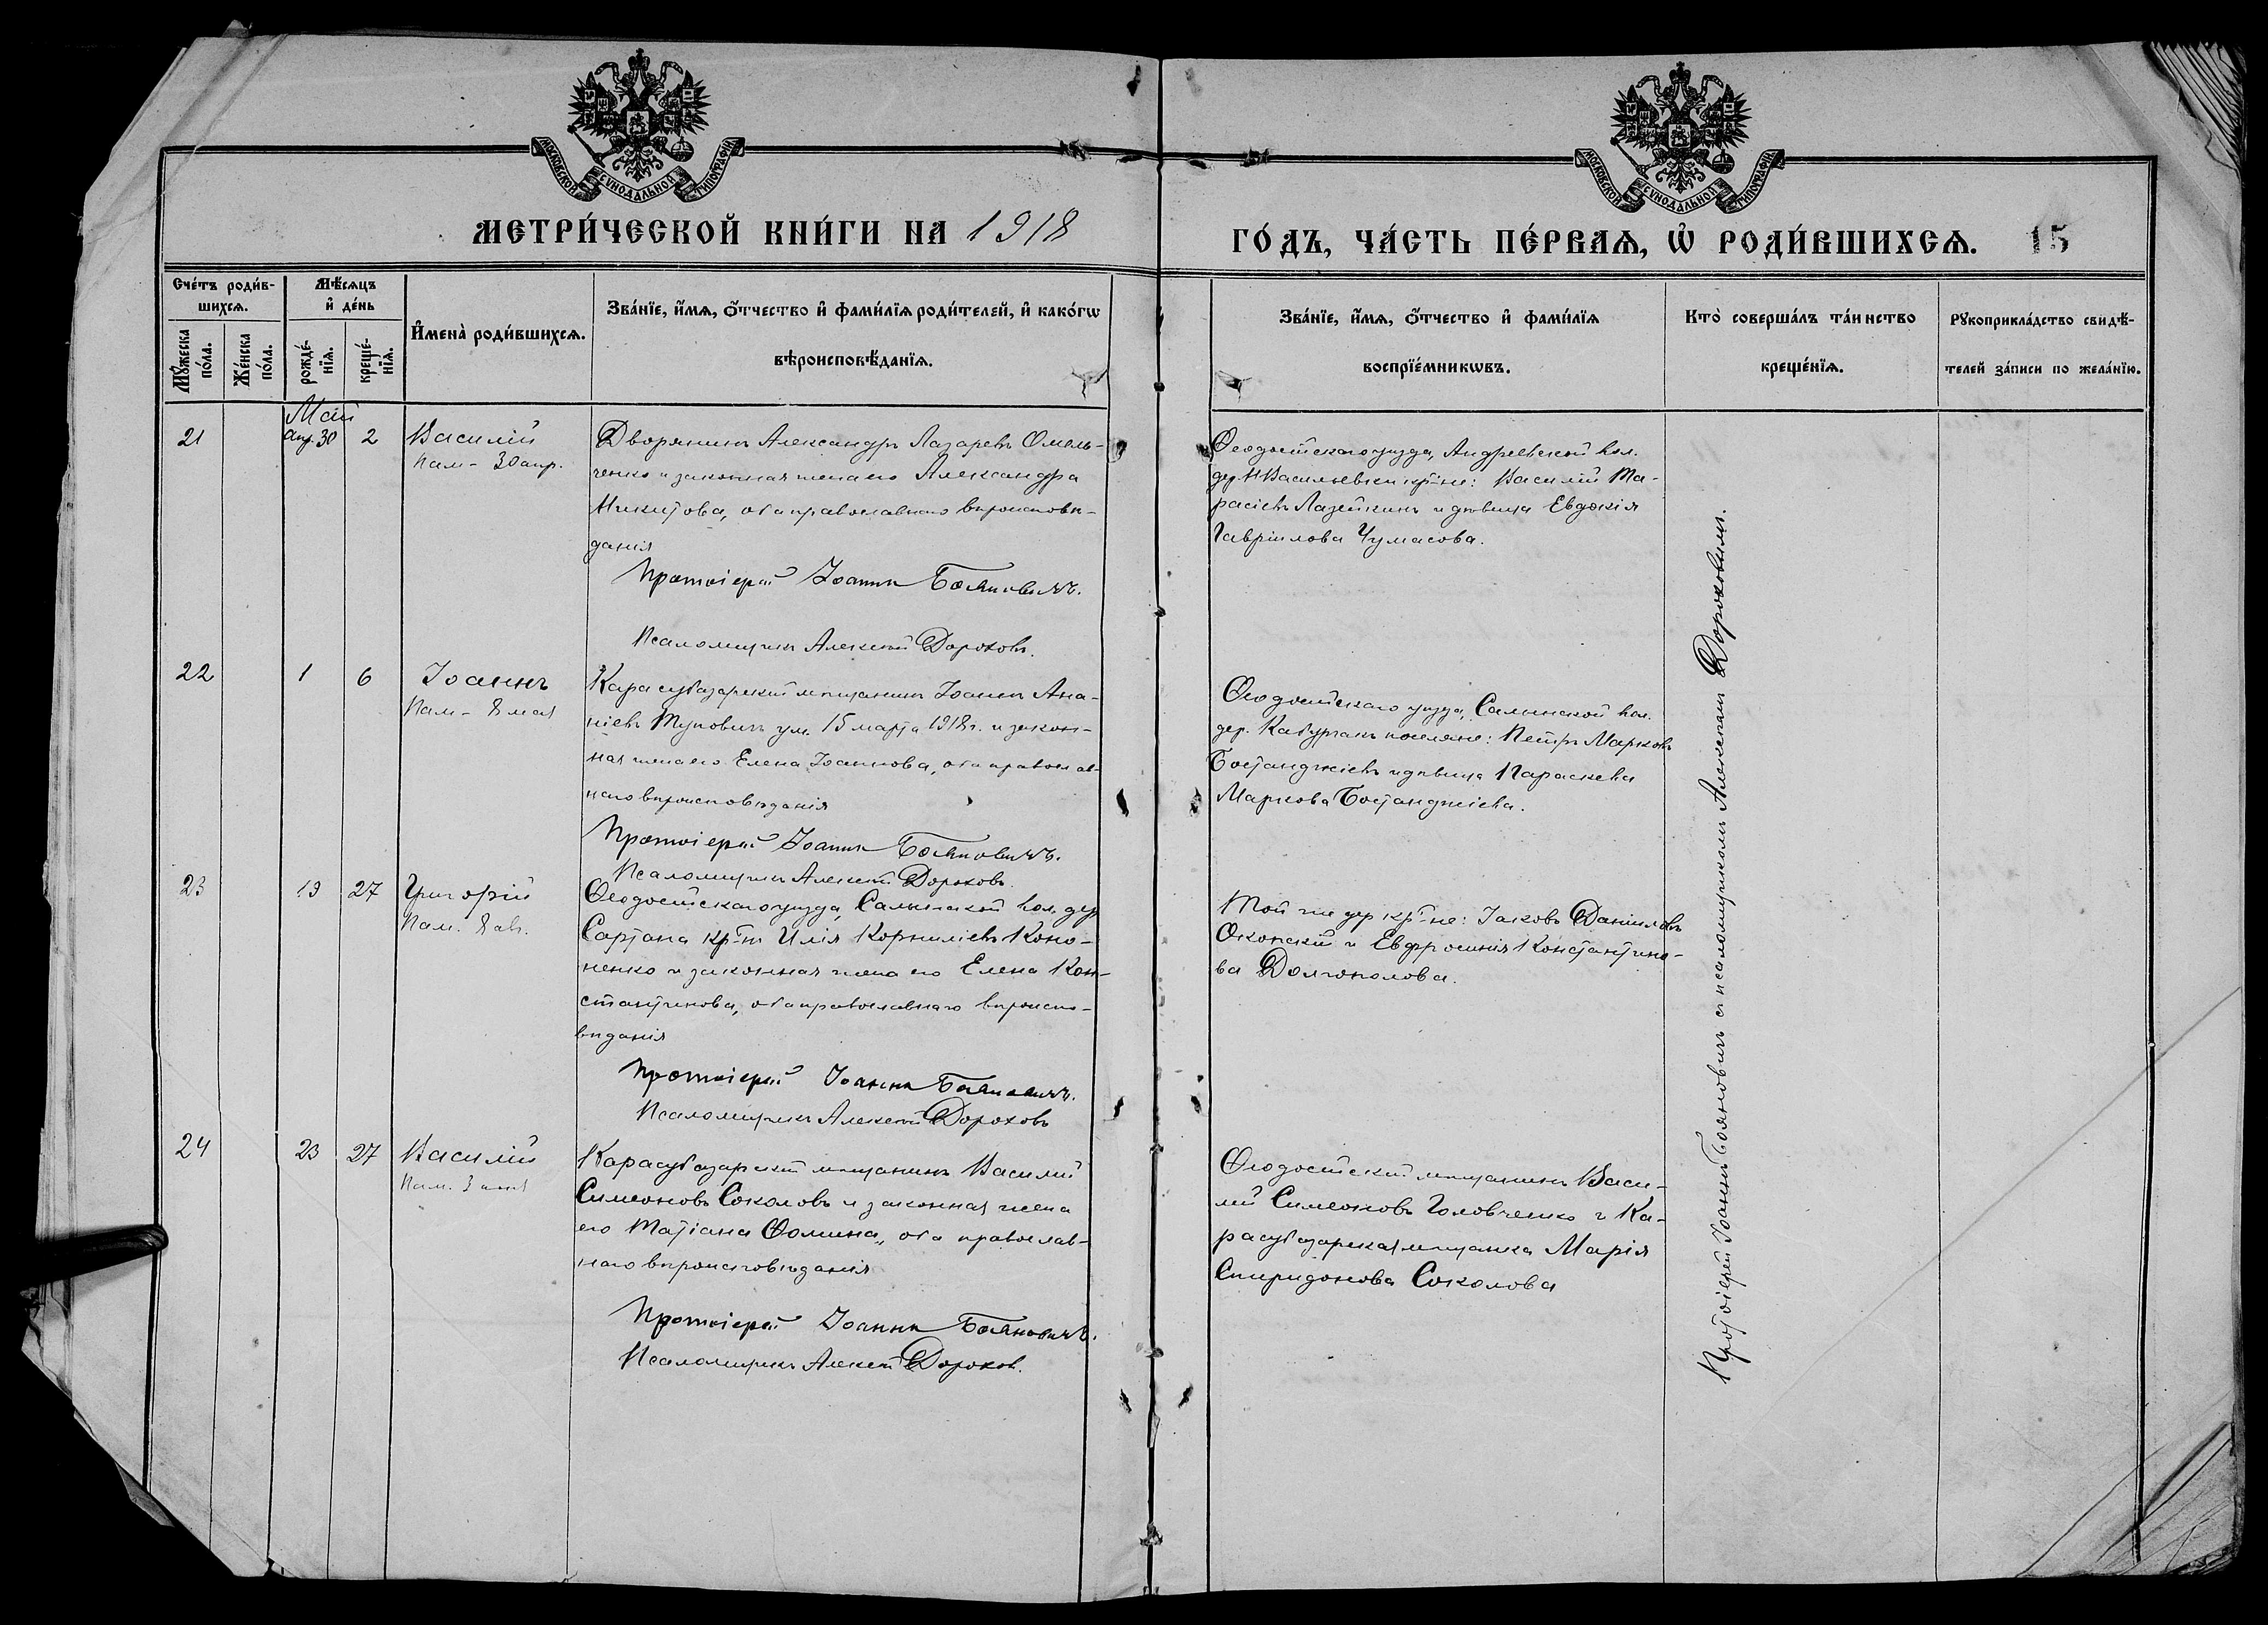 МОСКОВСКОЙ СУНОДАЛЬНОЙ ТИПОГРАФІИ
МОСКОВСКОЙ СУНОДАЛЬНОЙ ТИПОГРАФІИ
МЕТРИ́ЧЕСКОЙ КНИ́ГИ НА 1918
ГО́ДЪ, ЧА́СТЬ ПЕ́РВАЯ, Ѡ҆ РОДИ́ВШИХСЯ. 15
Сче́тъ роди́в-
шихсѧ.
Мꙋ́жеска
по́ла.
Же́нска
по́ла.
Мѣ́сяцъ
и҆ де́нь
рожде́-
нїѧ.
креще́-
нїѧ.
И҆мена̀ роди́вшихсѧ.
Зва́нїе, и҆́мѧ, ѻ҆́тчество и҆ фами́лїѧ роди́телей, и҆ како́гѡ
вѣроисповѣ́данїѧ.
Зва́нїе, и҆́мѧ, ѻ҆́тчество и҆ фами́лїѧ
воспрїе́мникѡвъ.
Кто̀ соверша́лъ та́инство
креще́нїѧ.
Рꙋкоприкла́дство свидѣ́-
телей за́писи по жела́нїю.
Май
21 апр. 30 2 Василій
Пам- 30 апр.
Дворянинъ Александръ Лазаревъ Омель-
ченко и законная жена его Александра
Никитова, оба православнаго вѣроисповѣ-
данія
Протоіерей Іоаннъ Бояновичъ.
Псаломщикъ Алексей Дороховъ.
Ѳеодосійскаго уѣзда, Андреевской вол.
дер. Н Васильевки кр-не: Василій Та-
расіевъ Лазейкинъ и дѣвица Евдокія
Гавріилова Чумасова.
22 1 6 Іоаннъ
Пам- 8 мая
Карасубазарскій мѣщанинъ Іоаннъ Ана-
ніевъ Туковичъ ум. 15 марта 1918 г. и закон-
ная жена его Елена Іоаннова, оба православ-
наго вѣроисповѣданія
Протоіерей Іоаннъ Бояновичъ.
Псаломщикъ Алексей Дороховъ.
Ѳеодосійскаго уѣзда, Салынской вол.
дер. Кабурчакъ поселяне: Петръ Марковъ
Бостанджіевъ и дѣвица Параскева
Маркова Бостанджіева.
23 19 27 Григорій
Пам. 8 авг.
Ѳеодосійскаго уѣзда, Салынской вол. дер
Сартана кр-нъ Илія Корниліевъ Коно-
ненко и законная жена его Елена Кон-
стантинова, оба православнаго вѣроиспо-
вѣданія
Протоіерей Іоаннъ Бояновичъ.
Псаломщикъ Алексей Дороховъ
Той же дер кр-не: Іаковъ Даніиловъ
Оконскій и Евфросинія Константино-
ва Долгополова.
24 23 27 Василій
Карасубазарскій мѣщанинъ Василій
Симеоновъ Соколовъ и законная жена
его Татіана Ѳомина, оба православ-
наго вѣроисповѣданія
Протоіерей Іоаннъ Бояновичъ.
Псаломщикъ Алексей Дорохов.
Ѳеодосійскій мѣщанинъ Васи-
лій Симеоновъ Головченко и Ка-
расубазарская мѣщанка Марія
Спиридонова Соколова
Протоіерей Іоаннъ Бояновичъ съ псаломщикомъ Алексеемъ Дороховымъ.